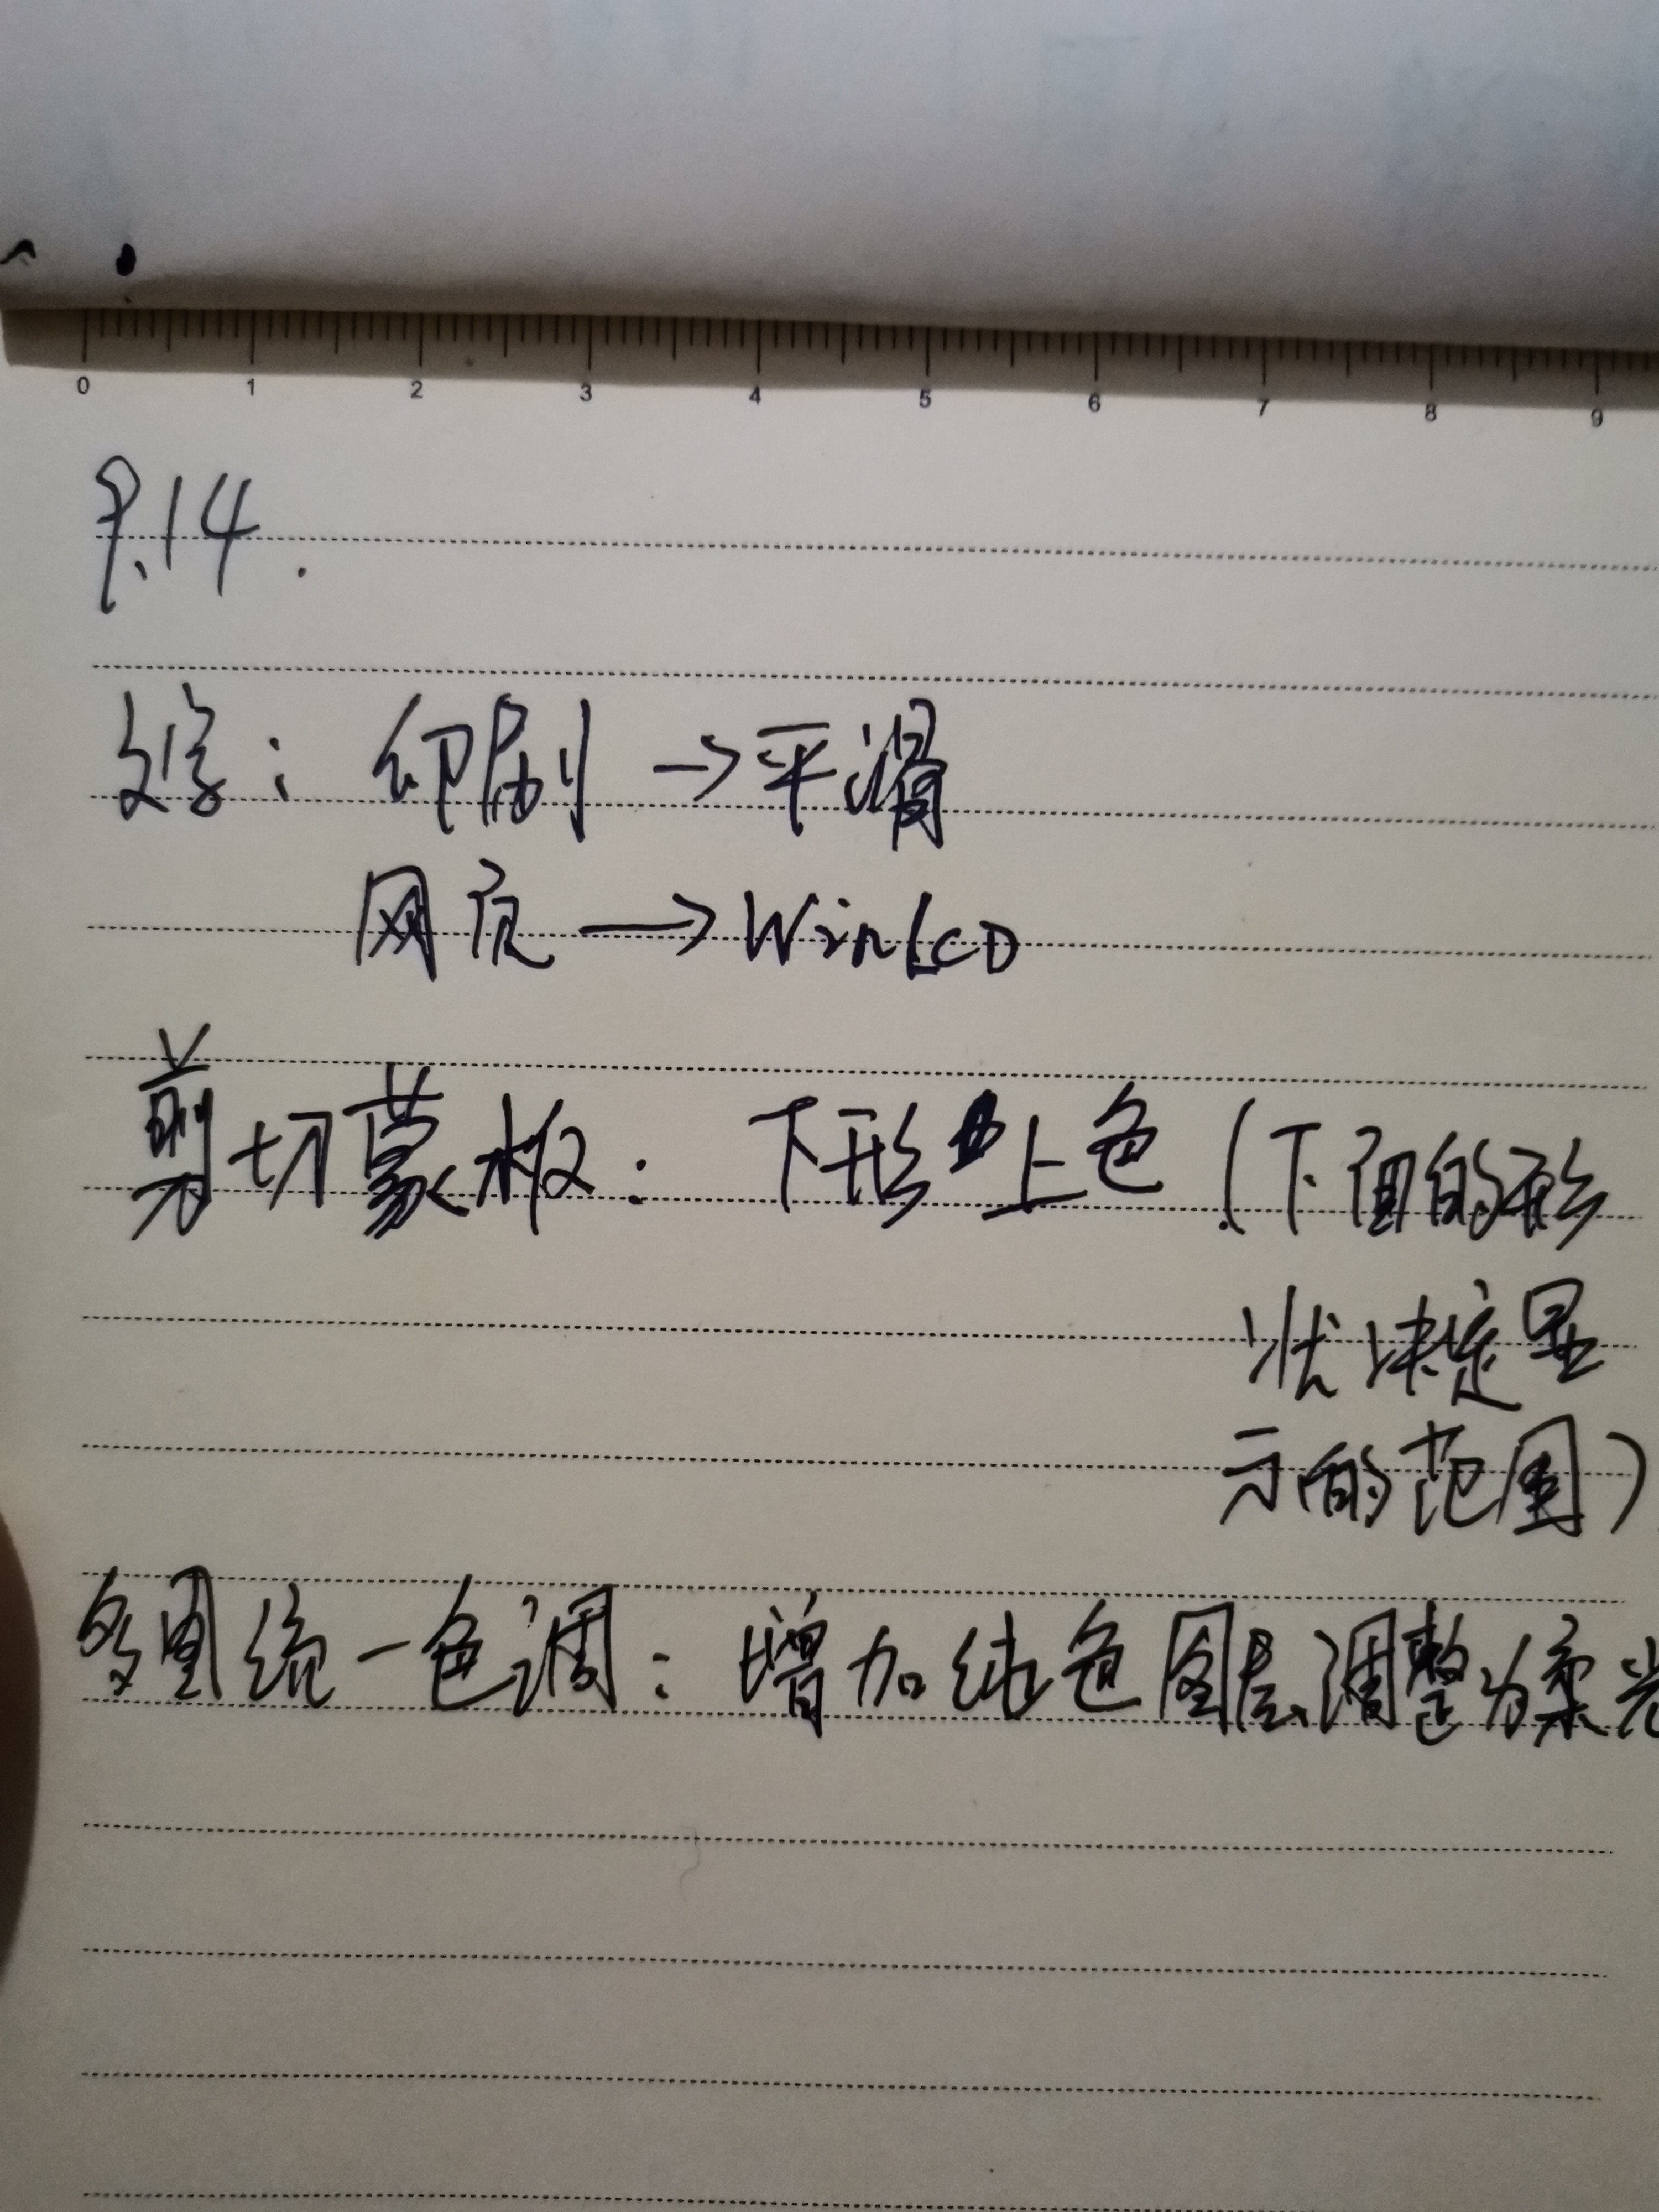 0 1 2 3 4 5 6 7 8 9
P.14.
文字：印刷→平滑
网页→WinLCD
剪切蒙板：下形上色（下面的形
状决定显
示的范围）
多图统一色调：增加纯色图层，调整为柔光